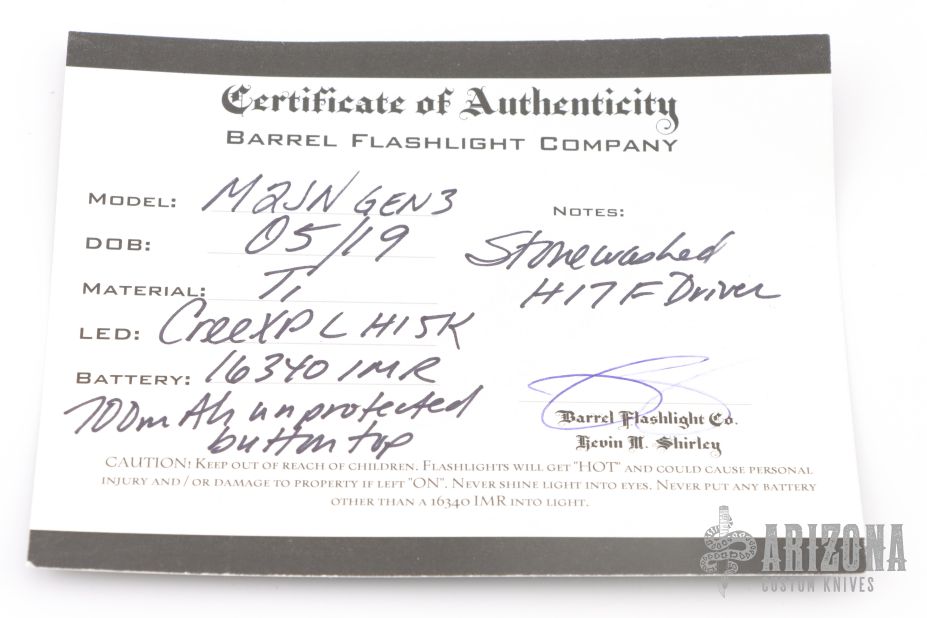 Certificate of Authenticity
BARREL FLASHLIGHT COMPANY
MODEL: M2JN GEN3
DOB: 05/19
MATERIAL: Ti
LED: Cree XPL HI 5K
BATTERY: 16340 IMR
700mAh unprotected
button top
NOTES:
Stonewashed
H17F Driver
Barrel Flashlight Co.
Kevin M. Shirley
CAUTION! KEEP OUT OF REACH OF CHILDREN. FLASHLIGHTS WILL GET "HOT" AND COULD CAUSE PERSONAL
INJURY AND/OR DAMAGE TO PROPERTY IF LEFT "ON". NEVER SHINE LIGHT INTO EYES. NEVER PUT ANY BATTERY
OTHER THAN A 16340 IMR INTO LIGHT.
ARIZONA
CUSTOM KNIVES